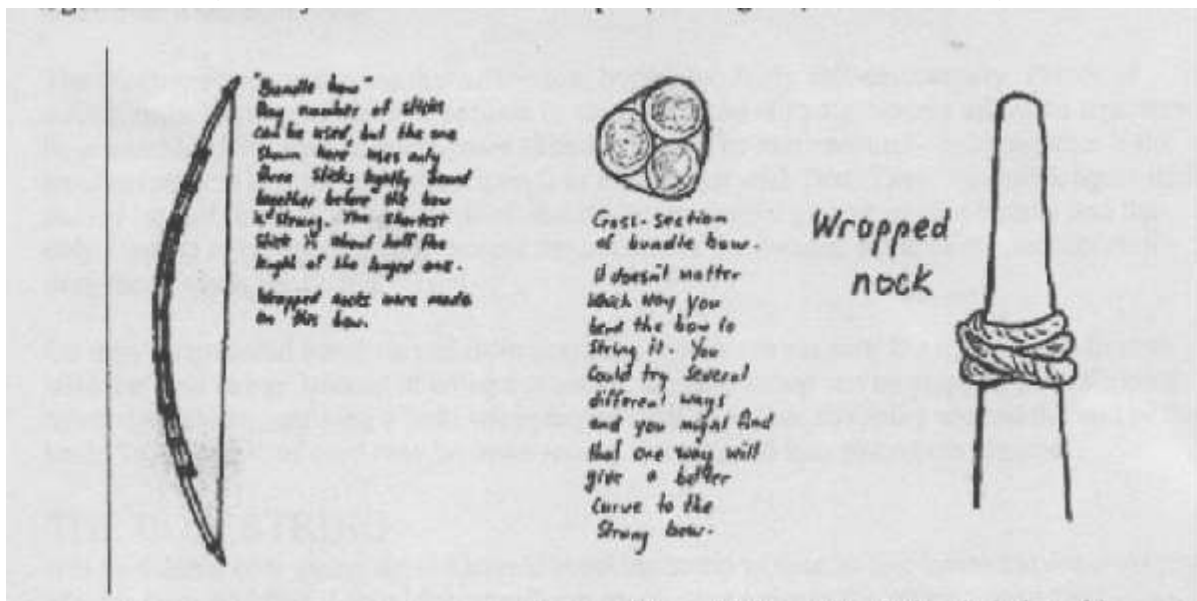 "Bundle bow"
Any number of sticks
can be used, but the one
shown here uses only
three sticks tightly bound
together before the bow
is strung. The shortest
stick is about half the
length of the longest one.
Wrapped nocks were made
on this bow.
Cross-section
of bundle bow.
it doesn't matter
which way you
bend the bow to
string it. You
Could try several
different ways
and you might find
that one way will
give a better
Curve to the
Strung bow.
Wrapped
nock